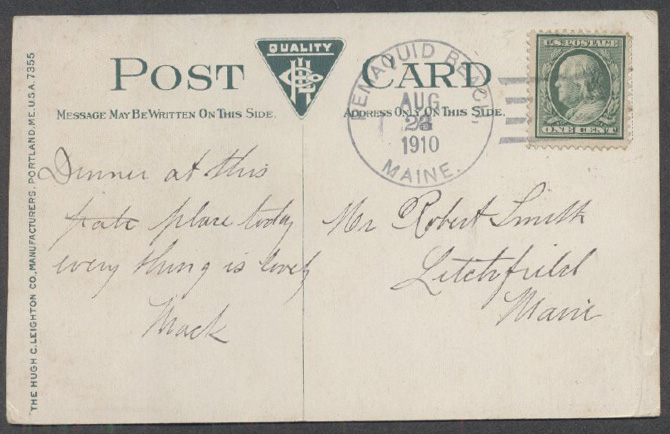 QUALITY
POST CARD
MESSAGE MAY BE WRITTEN ON THIS SIDE.
ADDRESS ONLY ON THIS SIDE.
THE HUGH C. LEIGHTON CO., MANUFACTURERS, PORTLAND, ME. U.S.A. 7355
PEMAQUID BEACH
AUG
1910
MAINE.
U.S. POSTAGE
ONE CENT
Dinner at this
place today
every thing is lovely
Mack
Mr Robert Smith
Litchfield
Maine